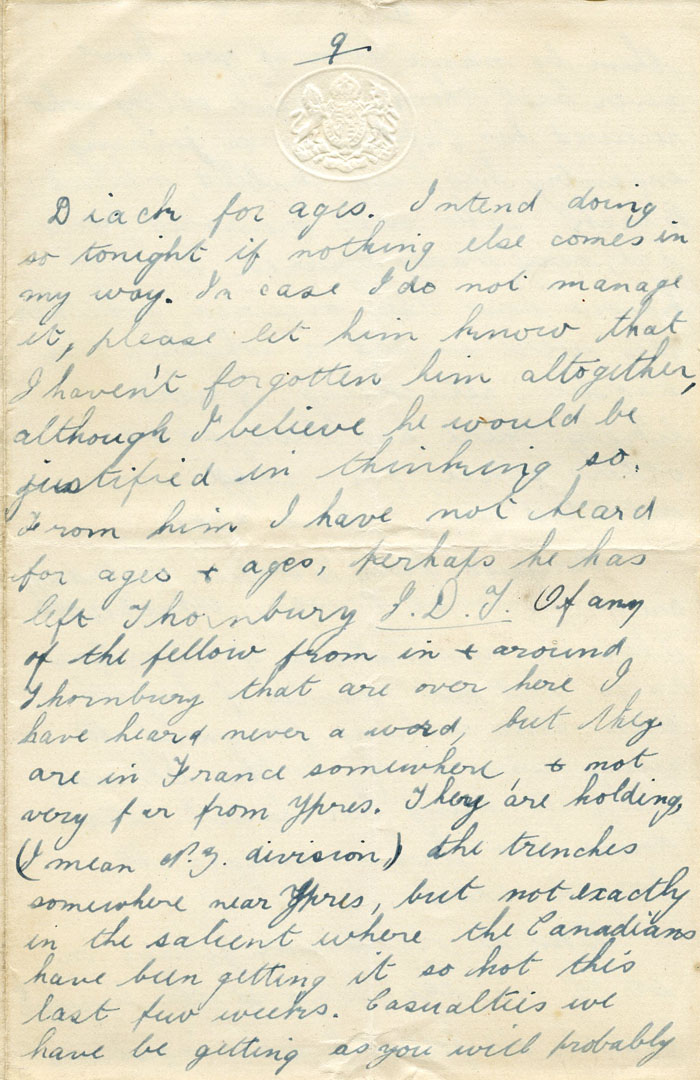 9
Diack for ages. Intend doing
so tonight if nothing else comes in
my way. In case I do not manage
it, please let him know that
I haven't forgotten him altogether,
although I believe he would be
justified in thinking so.
From him I have not heard
for ages & ages, perhaps he has
left Thornbury I.D.T. Of any
of the fellow from in & around
Thornbury that are over here I
have heard never a word, but they
are in France somewhere, & not
very far from Ypres. They are holding,
(I mean N.Z. division,) the trenches
somewhere near Ypres, but not exactly
in the salient where the Canadians
have been getting it so hot this
last few weeks. Casualties we
have be getting as you will probably